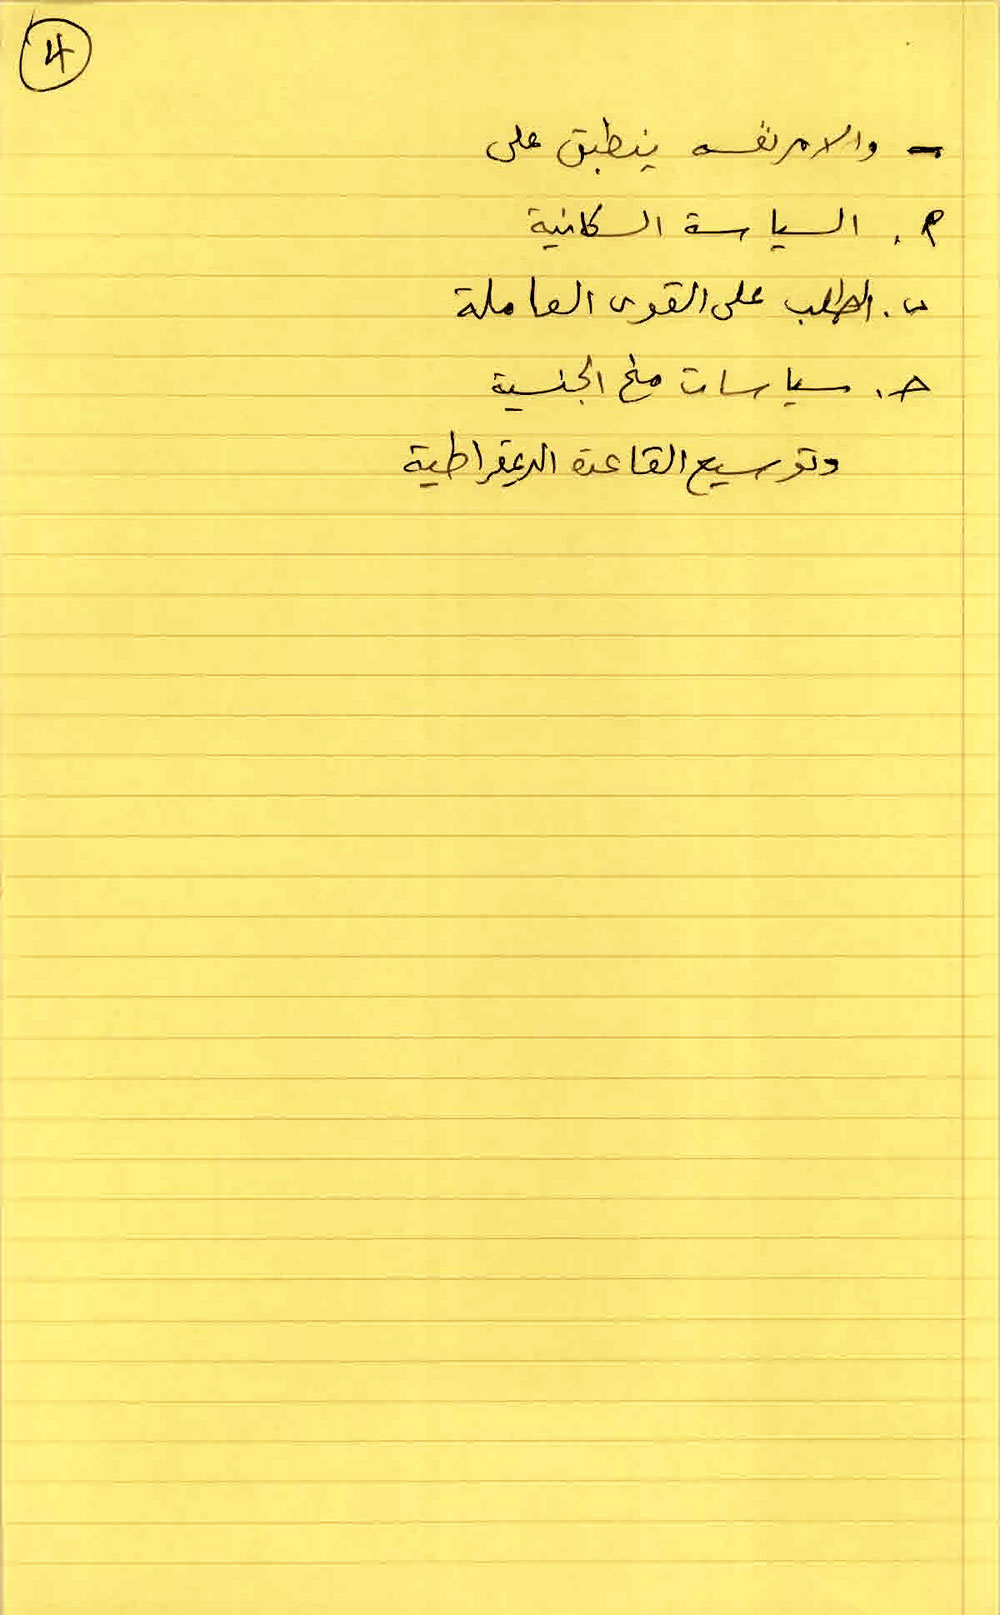 4
- والامر نفسه ينطبق على
أ. السياسة السكانية
ب. الطلب على القوى العاملة
ح. سياسات منح الجنسية
وتوسيع القاعدة الديمقراطية